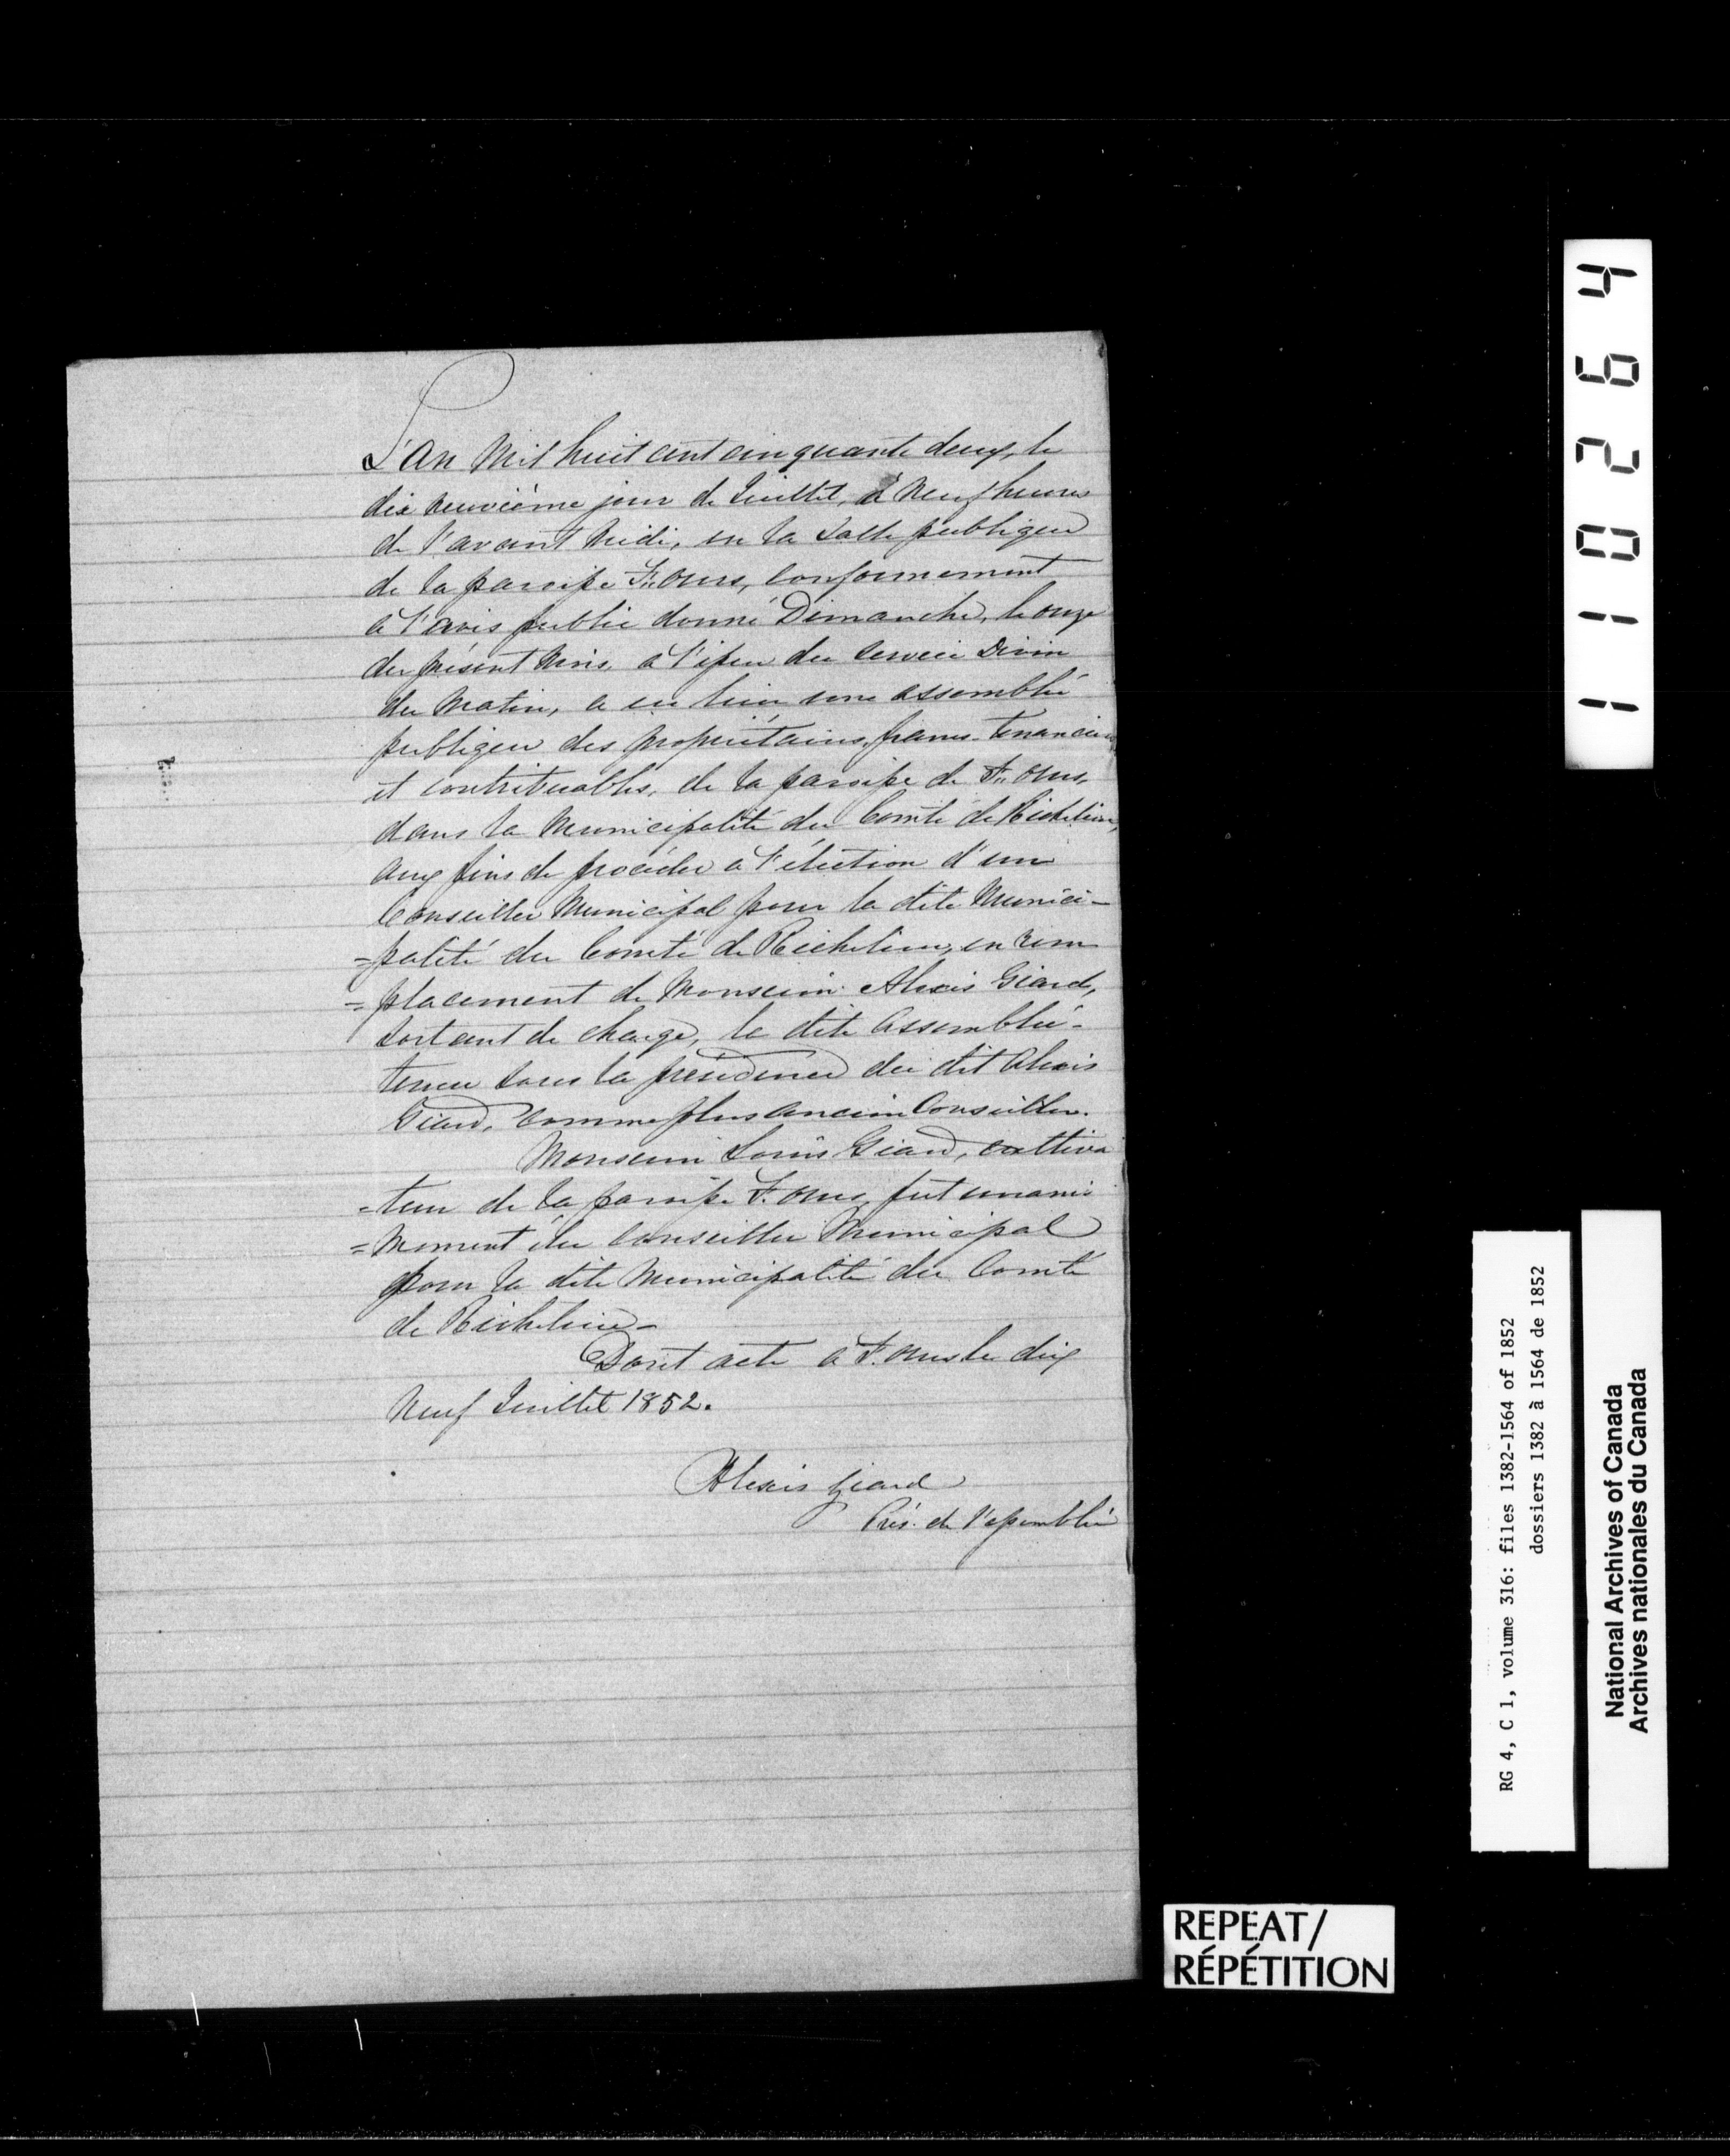 L'an Mil huit cent cinquante deux, le
dix neuvième jour de Juillet, à Neuf heures
de l'avant Midi, en la Salle publique
de la paroisse St. Ours, conformement
à l'avis public donné Dimanche, le onze
du présent Mois, à l'issue du Service Divin
du Matin, a eu lieu une assemblée
publique des propriétaires, francs-tenanciers
et contribuables, de la paroisse de St. Ours,
dans la Municipalité du Comté de Richelieu,
aux fins de procéder à l'élection d'un
Conseiller Municipal pour la dite Munici-
=palité du Comté de Richelieu, en rem
=placement de Monsieur Alexis Giard,
sortant de charge, la dite Assemblée
tenue sous la présidence du dit Alexis
Giard, comme plus ancien Conseiller.
Monsieur Louis Giard, cultiva
=teur de la paroisse St. Ours, fut unani
=mement élu Conseiller Municipal
pour la dite Municipalité du Comté
de Richelieu-
Dont acte à St. Ours le dix
Neuf Juillet 1852.
Alexis Giard
Prés. de l'assemblée
110264
RG 4, C 1, volume 316: files 1382-1564 of 1852
dossiers 1382 à 1564 de 1852
National Archives of Canada
Archives nationales du Canada
REPEAT/
RÉPÉTITION